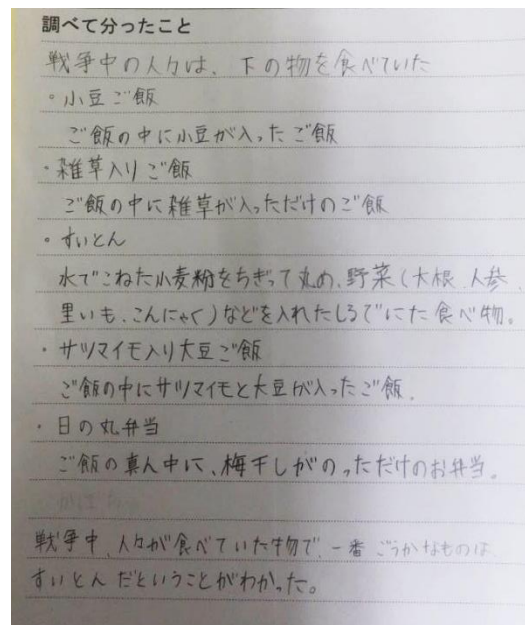 調べて分ったこと
戦争中の人々は、下の物を食べていた
。小豆ご飯
ご飯の中に小豆が入ったご飯
・雑草入りご飯
ご飯の中に雑草が入っただけのご飯
。すいとん
水でこねた小麦粉をちぎって丸め、野菜(大根、人参、
里いも、こんにゃく)などを入れたしるでにた食べ物。
・サツマイモ入り大豆ご飯
ご飯の中にサツマイモと大豆が入ったご飯.
・日の丸弁当
ご飯の真ん中に、梅干しがのっただけのお弁当。
戦争中、人々が食べていた物で、一番ごうかなものは、
すいとんだということがわかった。